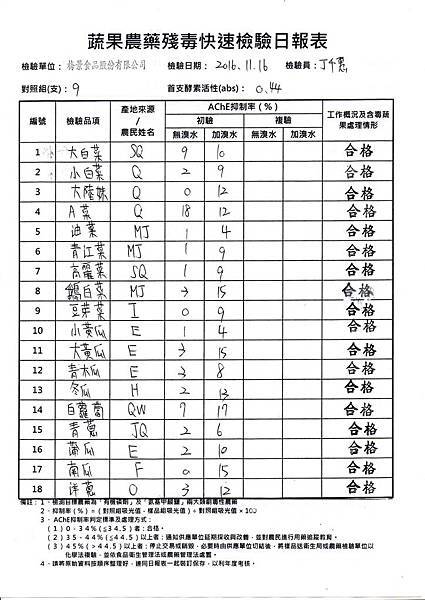 蔬果農藥殘毒快速檢驗日報表
檢驗單位： 梅景食品股份有限公司 檢驗日期： 2016.11.16 檢驗員：
對照組(支)： 9 首支酵素活性(abs)： 0.44
編號 檢驗品項 產地來源/農民姓名 AChE抑制率(%) 工作概況及含毒蔬果處理情形
初驗 複驗
無溴水 加溴水 無溴水 加溴水
1 大白菜 SQ 9 10 合格
2 小白菜 Q 2 9 合格
3 大陸妹 Q 0 12 合格
4 A菜 Q 18 12 合格
5 油菜 MJ 1 4 合格
6 青江菜 MJ 1 9 合格
7 高麗菜 SQ 1 9 合格
8 鵝白菜 MJ 3 15 合格
9 豆芽菜 I 0 9 合格
10 小黃瓜 E 1 4 合格
11 大黃瓜 E 3 15 合格
12 青木瓜 E 3 8 合格
13 冬瓜 H 2 13 合格
14 白蘿蔔 QW 7 17 合格
15 青蔥 JQ 2 6 合格
16 蒲瓜 E 2 10 合格
17 南瓜 F 0 15 合格
18 洋蔥 O 3 12 合格
備註：1、檢測目標農藥為「有機磷劑」及「氨基甲酸鹽」兩大類劇毒性農藥
2、抑制率(%)=(對照組吸光值-樣品組吸光值)÷對照組吸光值×100
3、AChE抑制率判定標準及處理方式：
(1)0-34%(≦34.5)者：合格。
(2)35-44%(≦44.5)以上者：通知供應單位延期採收與改善，並對農民進行用藥追蹤教育。
(3)45%(>44.5)以上者：停止交易或銷毀，必要時由供應單位切結後，將樣品送衛生局或農藥檢驗單位以
化學法複驗，並依食品衛生管理法或農藥管理法處置。
4、請將原始資料按順序整理好，連同日報表一起裝訂保存，以利年度考核。